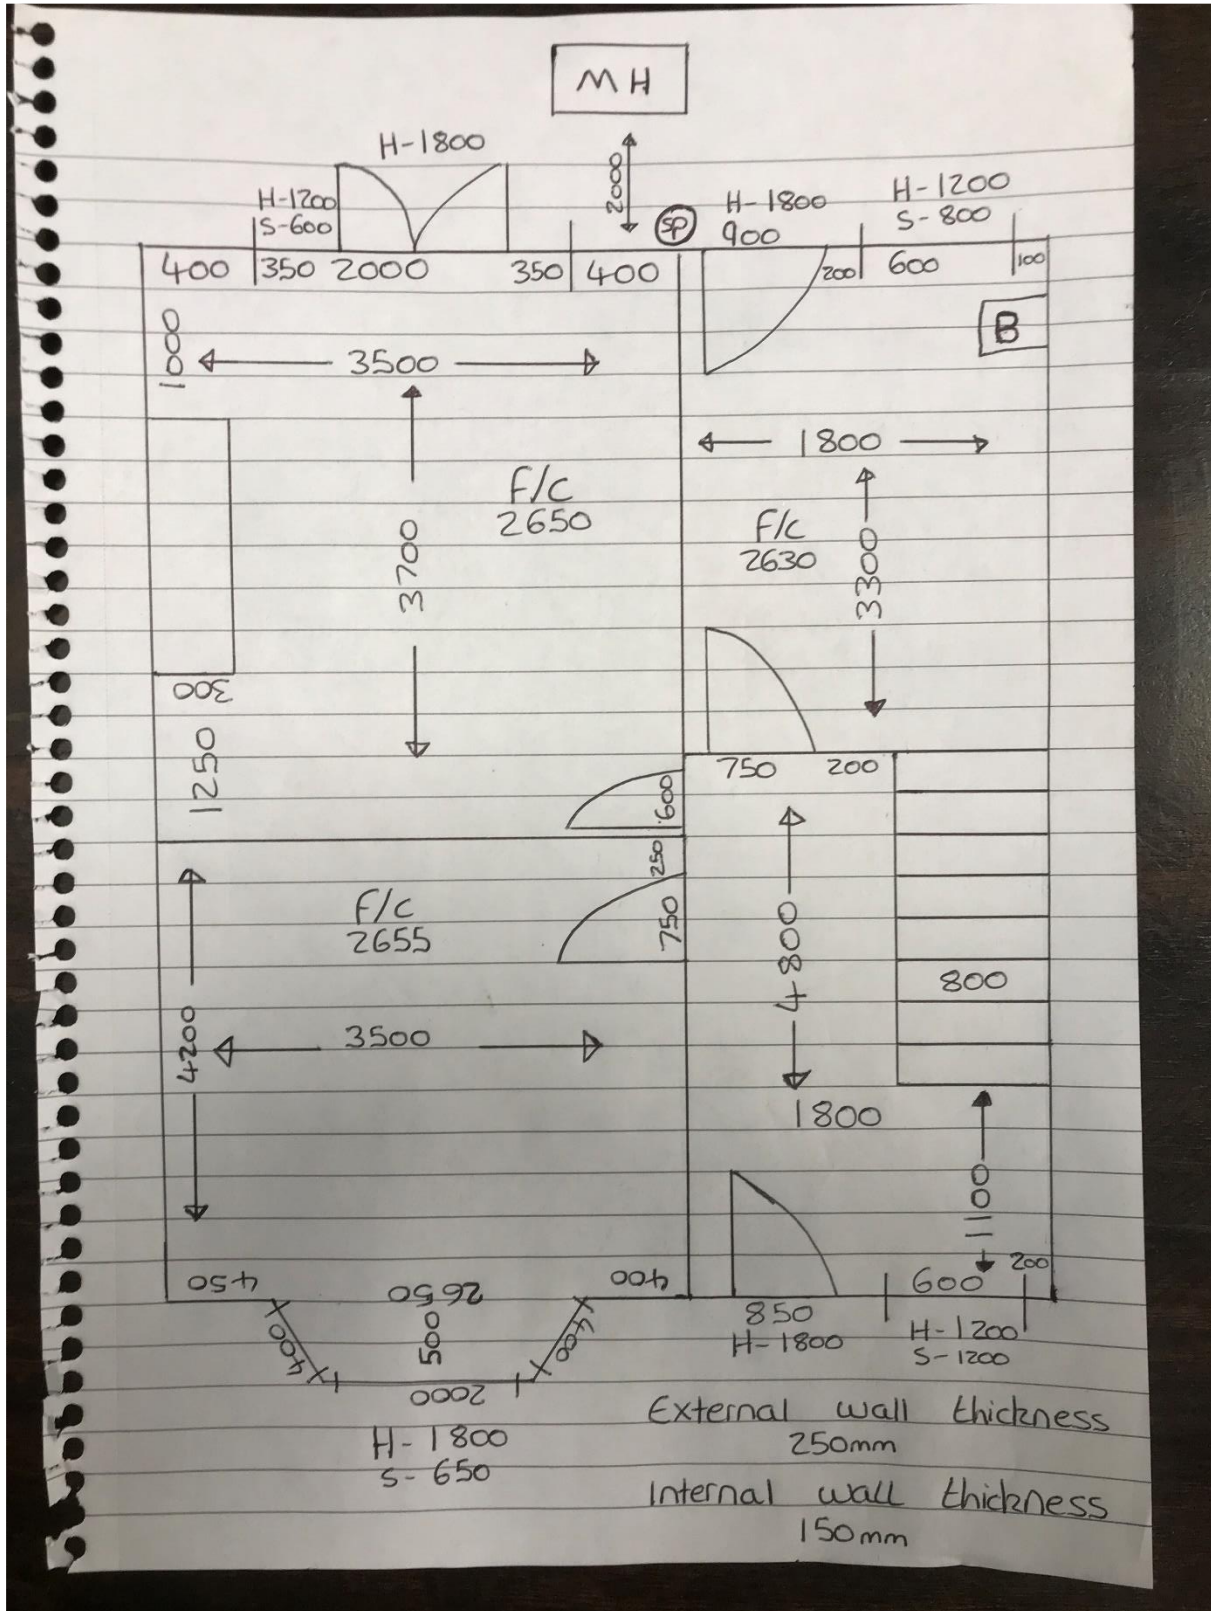 MH
H-1800
2000
H-1200
S-600
SP
H-1800
900
H-1200
S-800
400
350
2000
350
400
200
600
100
1000
3500
B
1800
F/C
2650
3700
F/C
2630
3300
300
1250
600
750
200
250
F/C
2655
750
4800
800
4200
3500
1800
1100
450
2650
400
200
600
400
500
400
850
H-1800
H-1200
S-1200
2000
H-1800
S-650
External wall thickness
250mm
Internal wall thickness
150mm